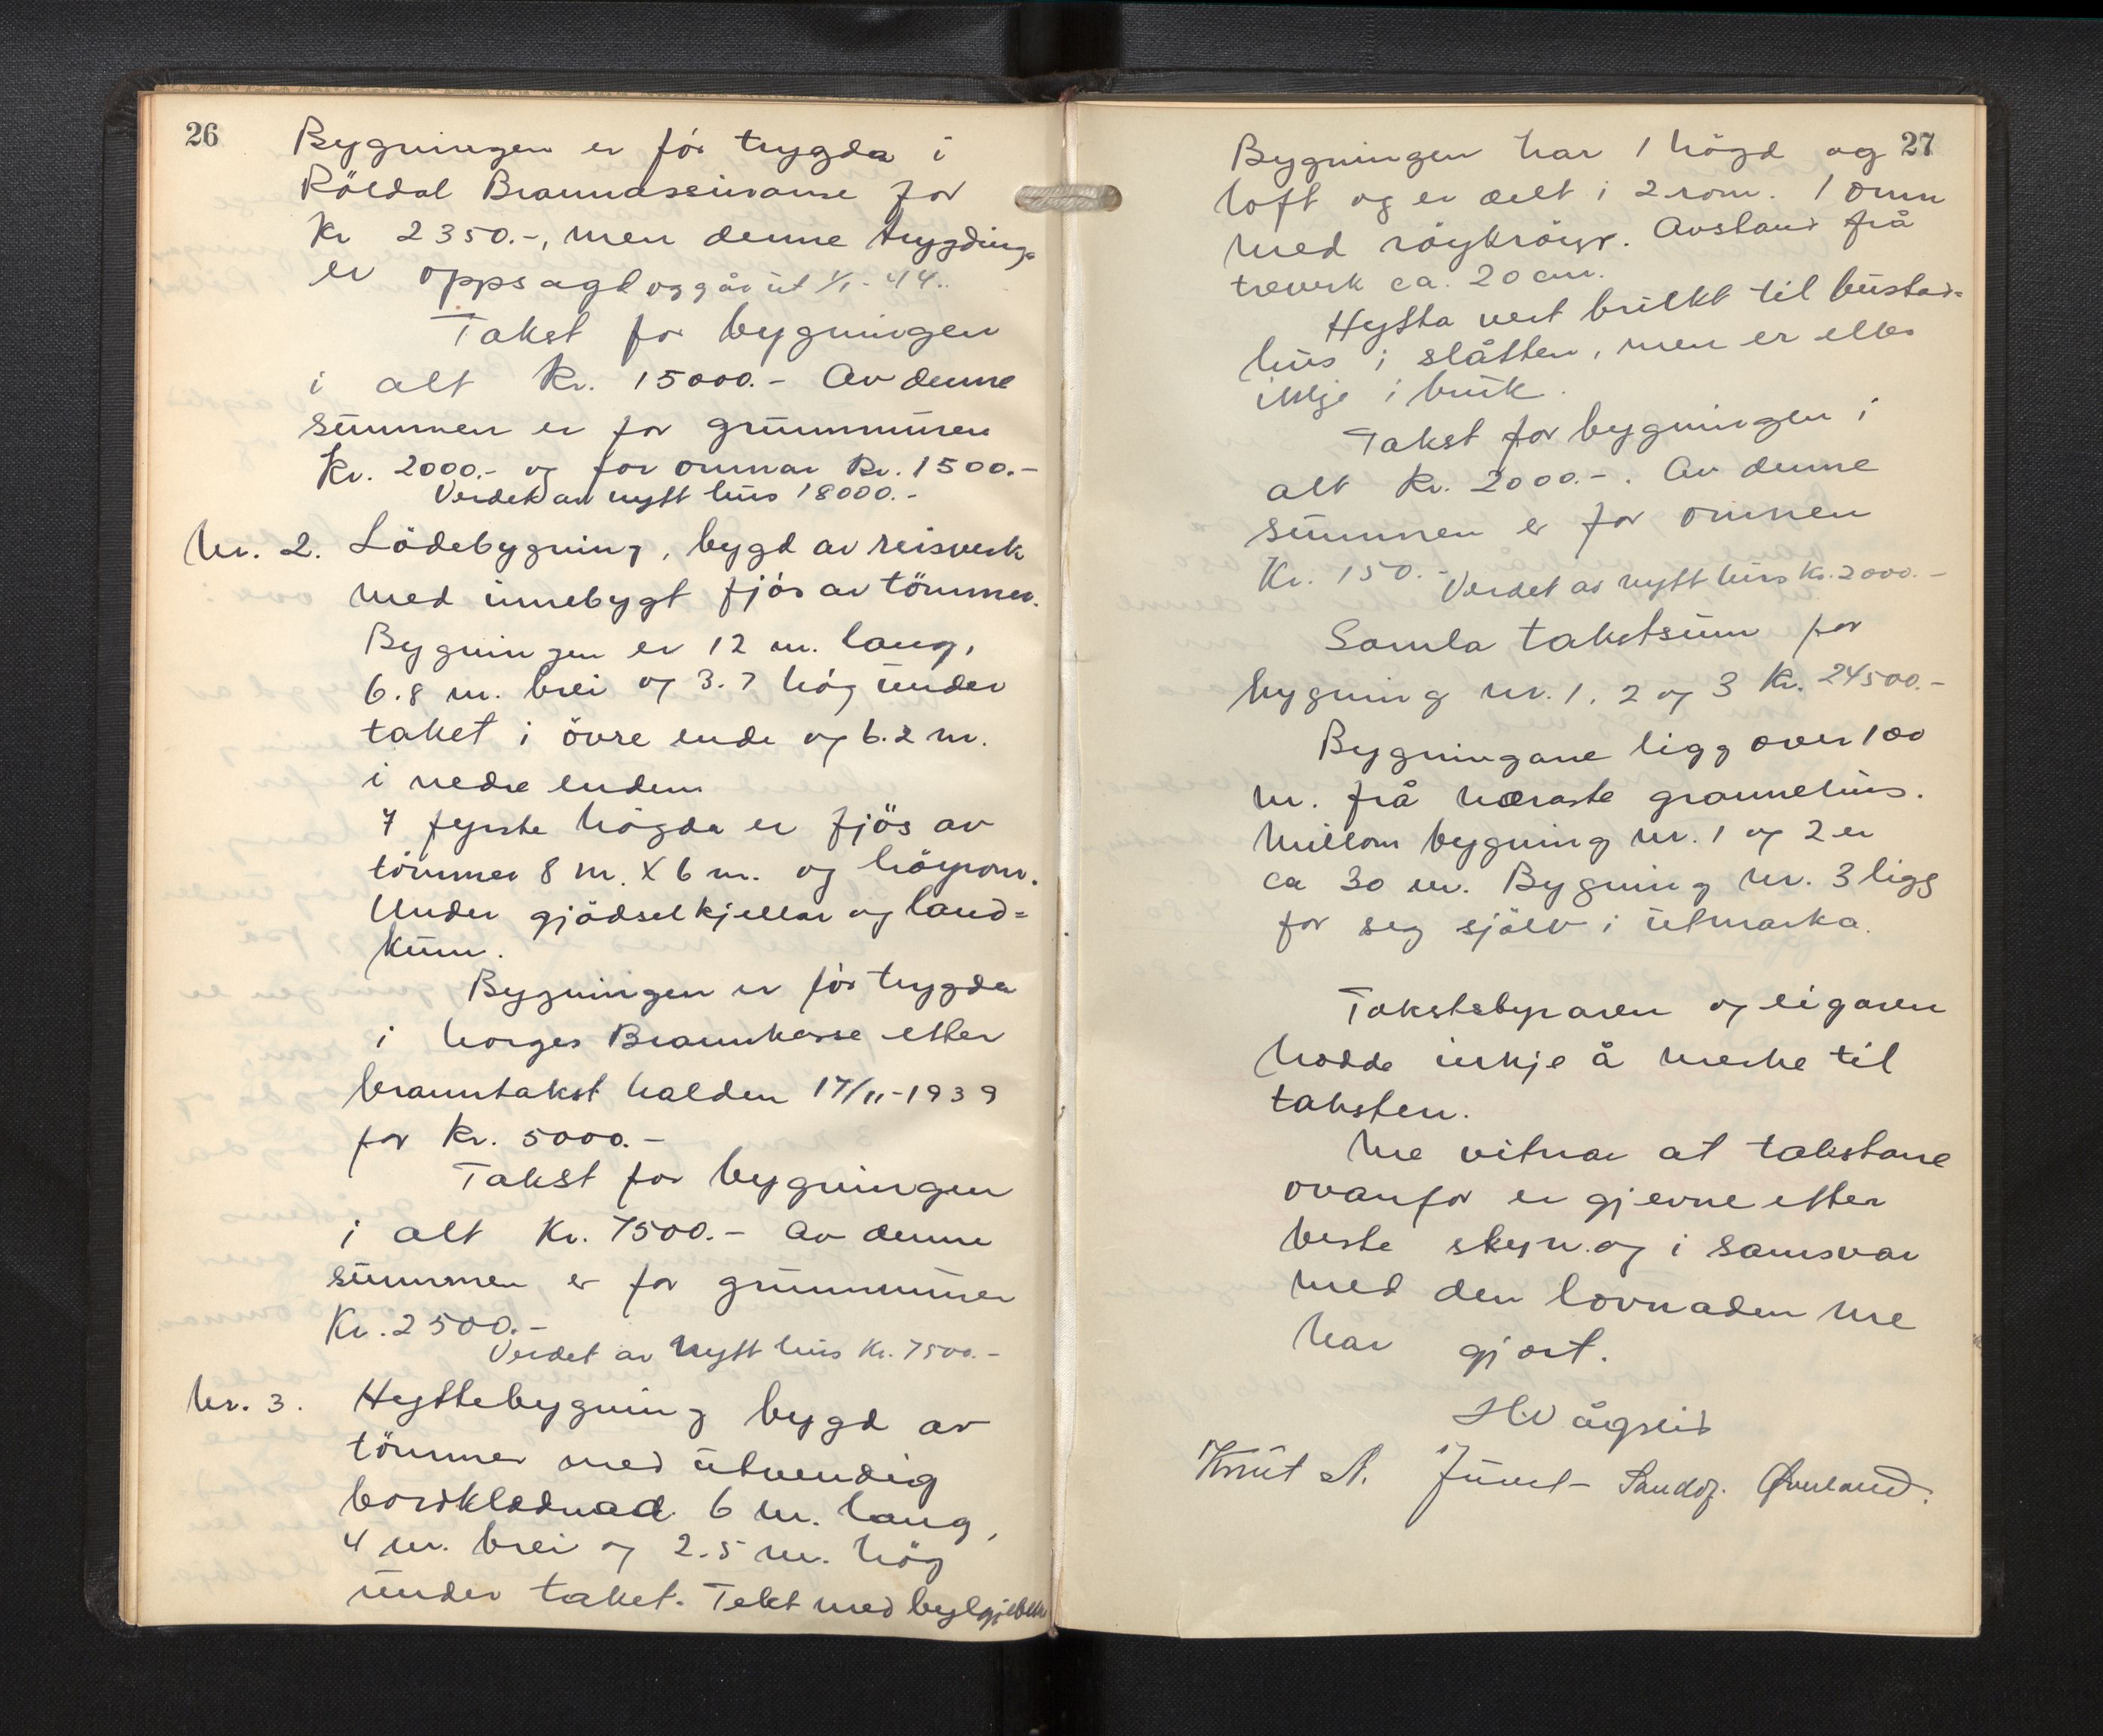 26
Bygningen er för trygda i
Röldal Brannassuranse for
Kr 2350.-, men denne trygding
er oppsagd og går ut 1/1-44.
Takst for bygningen
i alt Kr. 15000.- Av denne
summen er for grunnmuren
Kr. 2000.- og for omnar Kr. 1500.-
Verdet av nytt hus 18000.-
Nr. 2. Lödebygning, bygd av reisverk
med innebygt fjös av tömmer.
Bygningen er 12 m. lang,
6.8 m. brei og 3.7 hög under
taket i övre ende og 6.2 m.
i nedre enden.
I fyrste högda er fjös av
tömmer 8 m. X 6 m. og höyrom.
Under gjödselkjellar og land=
kum.
Bygningen er för trygda
i Norges Brannkasse etter
branntakst halden 17/11-1939
for Kr. 5000.-
Takst for bygningen
i alt Kr. 7500.- Av denne
summen er for grunnmuren
Kr. 2500.-
Verdet av nytt hus Kr. 7500.-
Nr. 3. Hyttebygning bygd av
tömmer med utvendig
bordklædnad 6 m. lang,
4 m. brei og 2.5 m. hög
under taket. Tekt med bylgjeblekk
27
Bygningen har 1 högd og
loft og er delt i 2 rom. 1 omn
med röykröyr. Avstand frå
treverk ca. 20 cm.
Hytta vert brukt til bustad=
hus i slåtten, men er elles
ikkje i bruk.
Takst for bygningen i
alt Kr. 2000.-. Av denne
summen er for omnen
Kr. 150.- Verdet av nytt hus Kr. 2000.-
Samla takstsum for
bygning nr. 1, 2 og 3 Kr. 24500.-
Bygningane ligg over 100
m. frå næraste grannehus.
Millom bygning nr. 1 og 2 er
ca 30 m. Bygning nr. 3 ligg
for seg sjölv i utmarka.
Takstsbyraren og eigaren
hadde inkje å merke til
taksten.
Me vitnar at takstane
ovanfor er gjevne etter
beste skyn og i samsvar
med den lovnaden me
har gjort.
H. Vågslid
Knut A. Juvet - Sandof. Øverland.